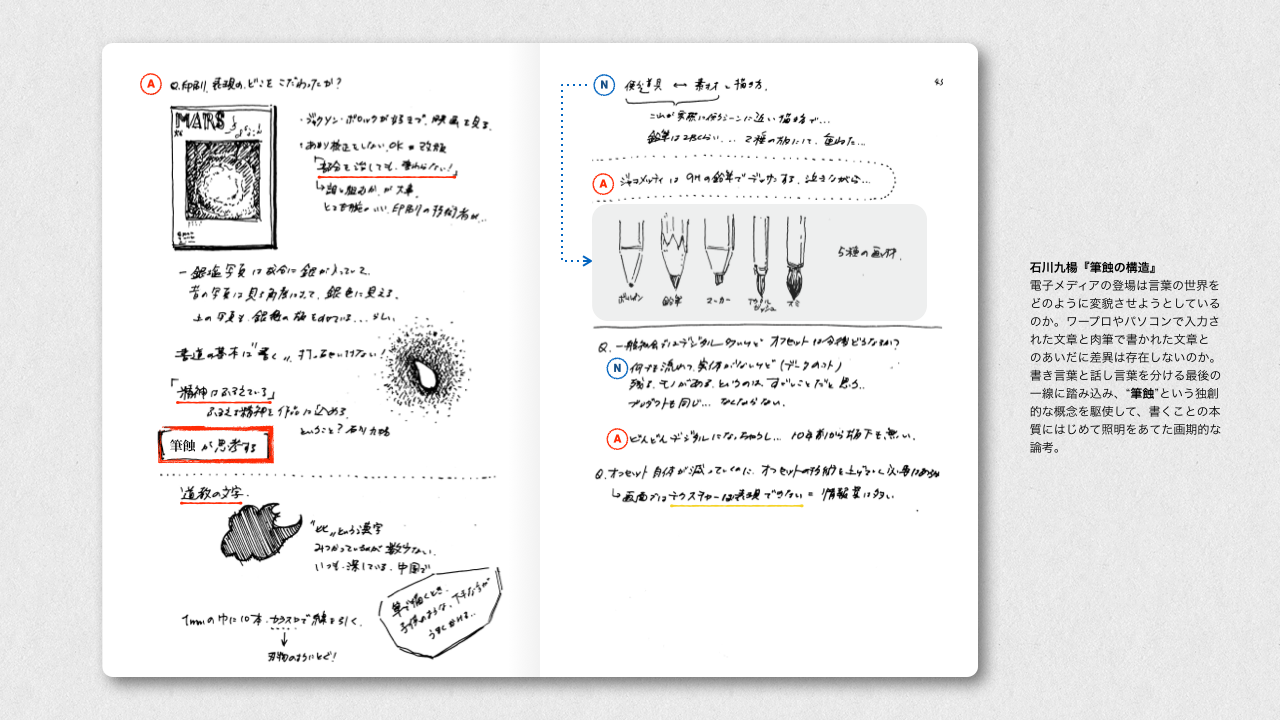 A
Q.印刷、表現の、どこをこだわったか?
MARS
・ジャクソン・ポロックが好きで、映画を見る.
・あまり校正をしない.OK=改版
「部分を治しても、変わらない!」
大事.
印刷の技術者が...
ー銀塩写真は成分に銀が入っていて.
昔の写真は見る角度によって、銀色に見える.
書道の基本は"書く"
「精神はふるえている」
ふるえる精神を作品に込める
ということ? 石川九楊
筆蝕が思考する
道教の文字.
という漢字
みつかっているのが数少ない.
いつも探している. 中国で
筆で描くとき.
子供のような、下手な方が
1mmの中に10本.カラス口で線を引く.
刃物のようにとぐ!
45
N
使う道具 ↔ 素材 と描き方.
これが実際に使うシーンに近い描き方で...
鉛筆は2Bくらい... 2種の板にて、重ねた...
A
ジャコメッティは9Hの鉛筆でデッサンする. 泣きながら...
ボールペン
鉛筆
マーカー
スミ
5種の画材.
Q. 一般社会ではデジタル多いけど オフセットは今後どうなるか?
N
何でも流れて、実体が少ないけど(データのみ)
残る、モノがある.というのは、すごいことだと思う..
プロダクトも同じ... なくならない.
A
どんどんデジタルになっちゃうし... 10年前から版下も無い.
Q.オフセット自体が減っていくのに、オフセットの技術を上げていく必要はあるか
↳画面ではテクスチャーは表現できない = 情報量は多い
石川九楊『筆蝕の構造』
電子メディアの登場は言葉の世界を
どのように変貌させようとしている
のか。ワープロやパソコンで入力さ
れた文章と肉筆で書かれた文章と
のあいだに差異は存在しないのか。
書き言葉と話し言葉を分ける最後の
一線に踏み込み、“筆蝕”という独創
的な概念を駆使して、書くことの本
質にはじめて照明をあてた画期的な
論考。